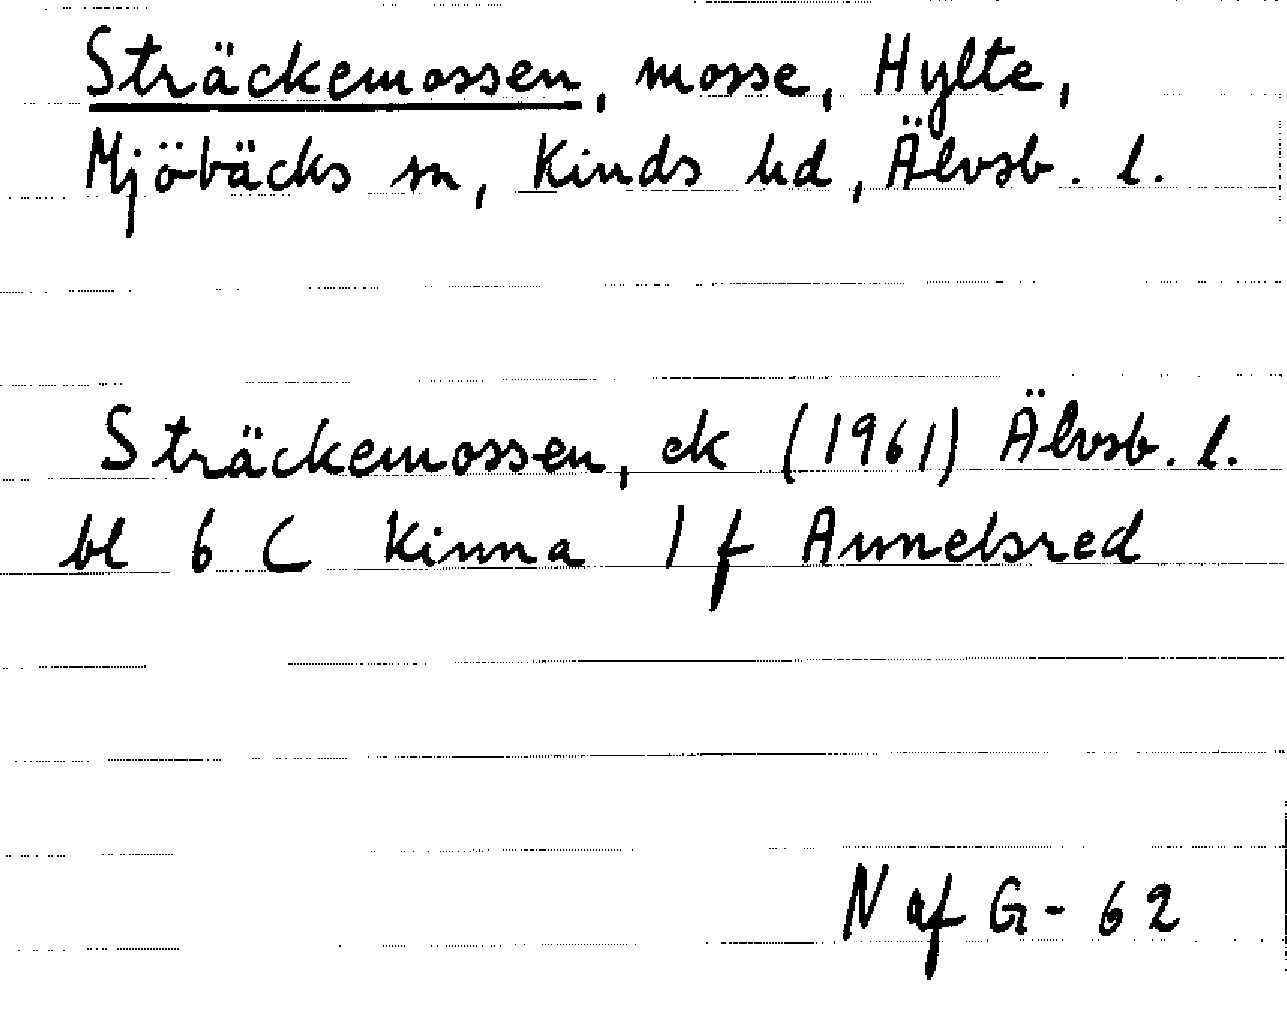 Sträckemossen, mosse, Hylte,
Mjöbäcks sn, Kinds hd, Älvsb. l.
Sträckemossen, ek (1961) Älvsb. l.
bl 6 C Kinna 1 f Annelsred
N af G - 62